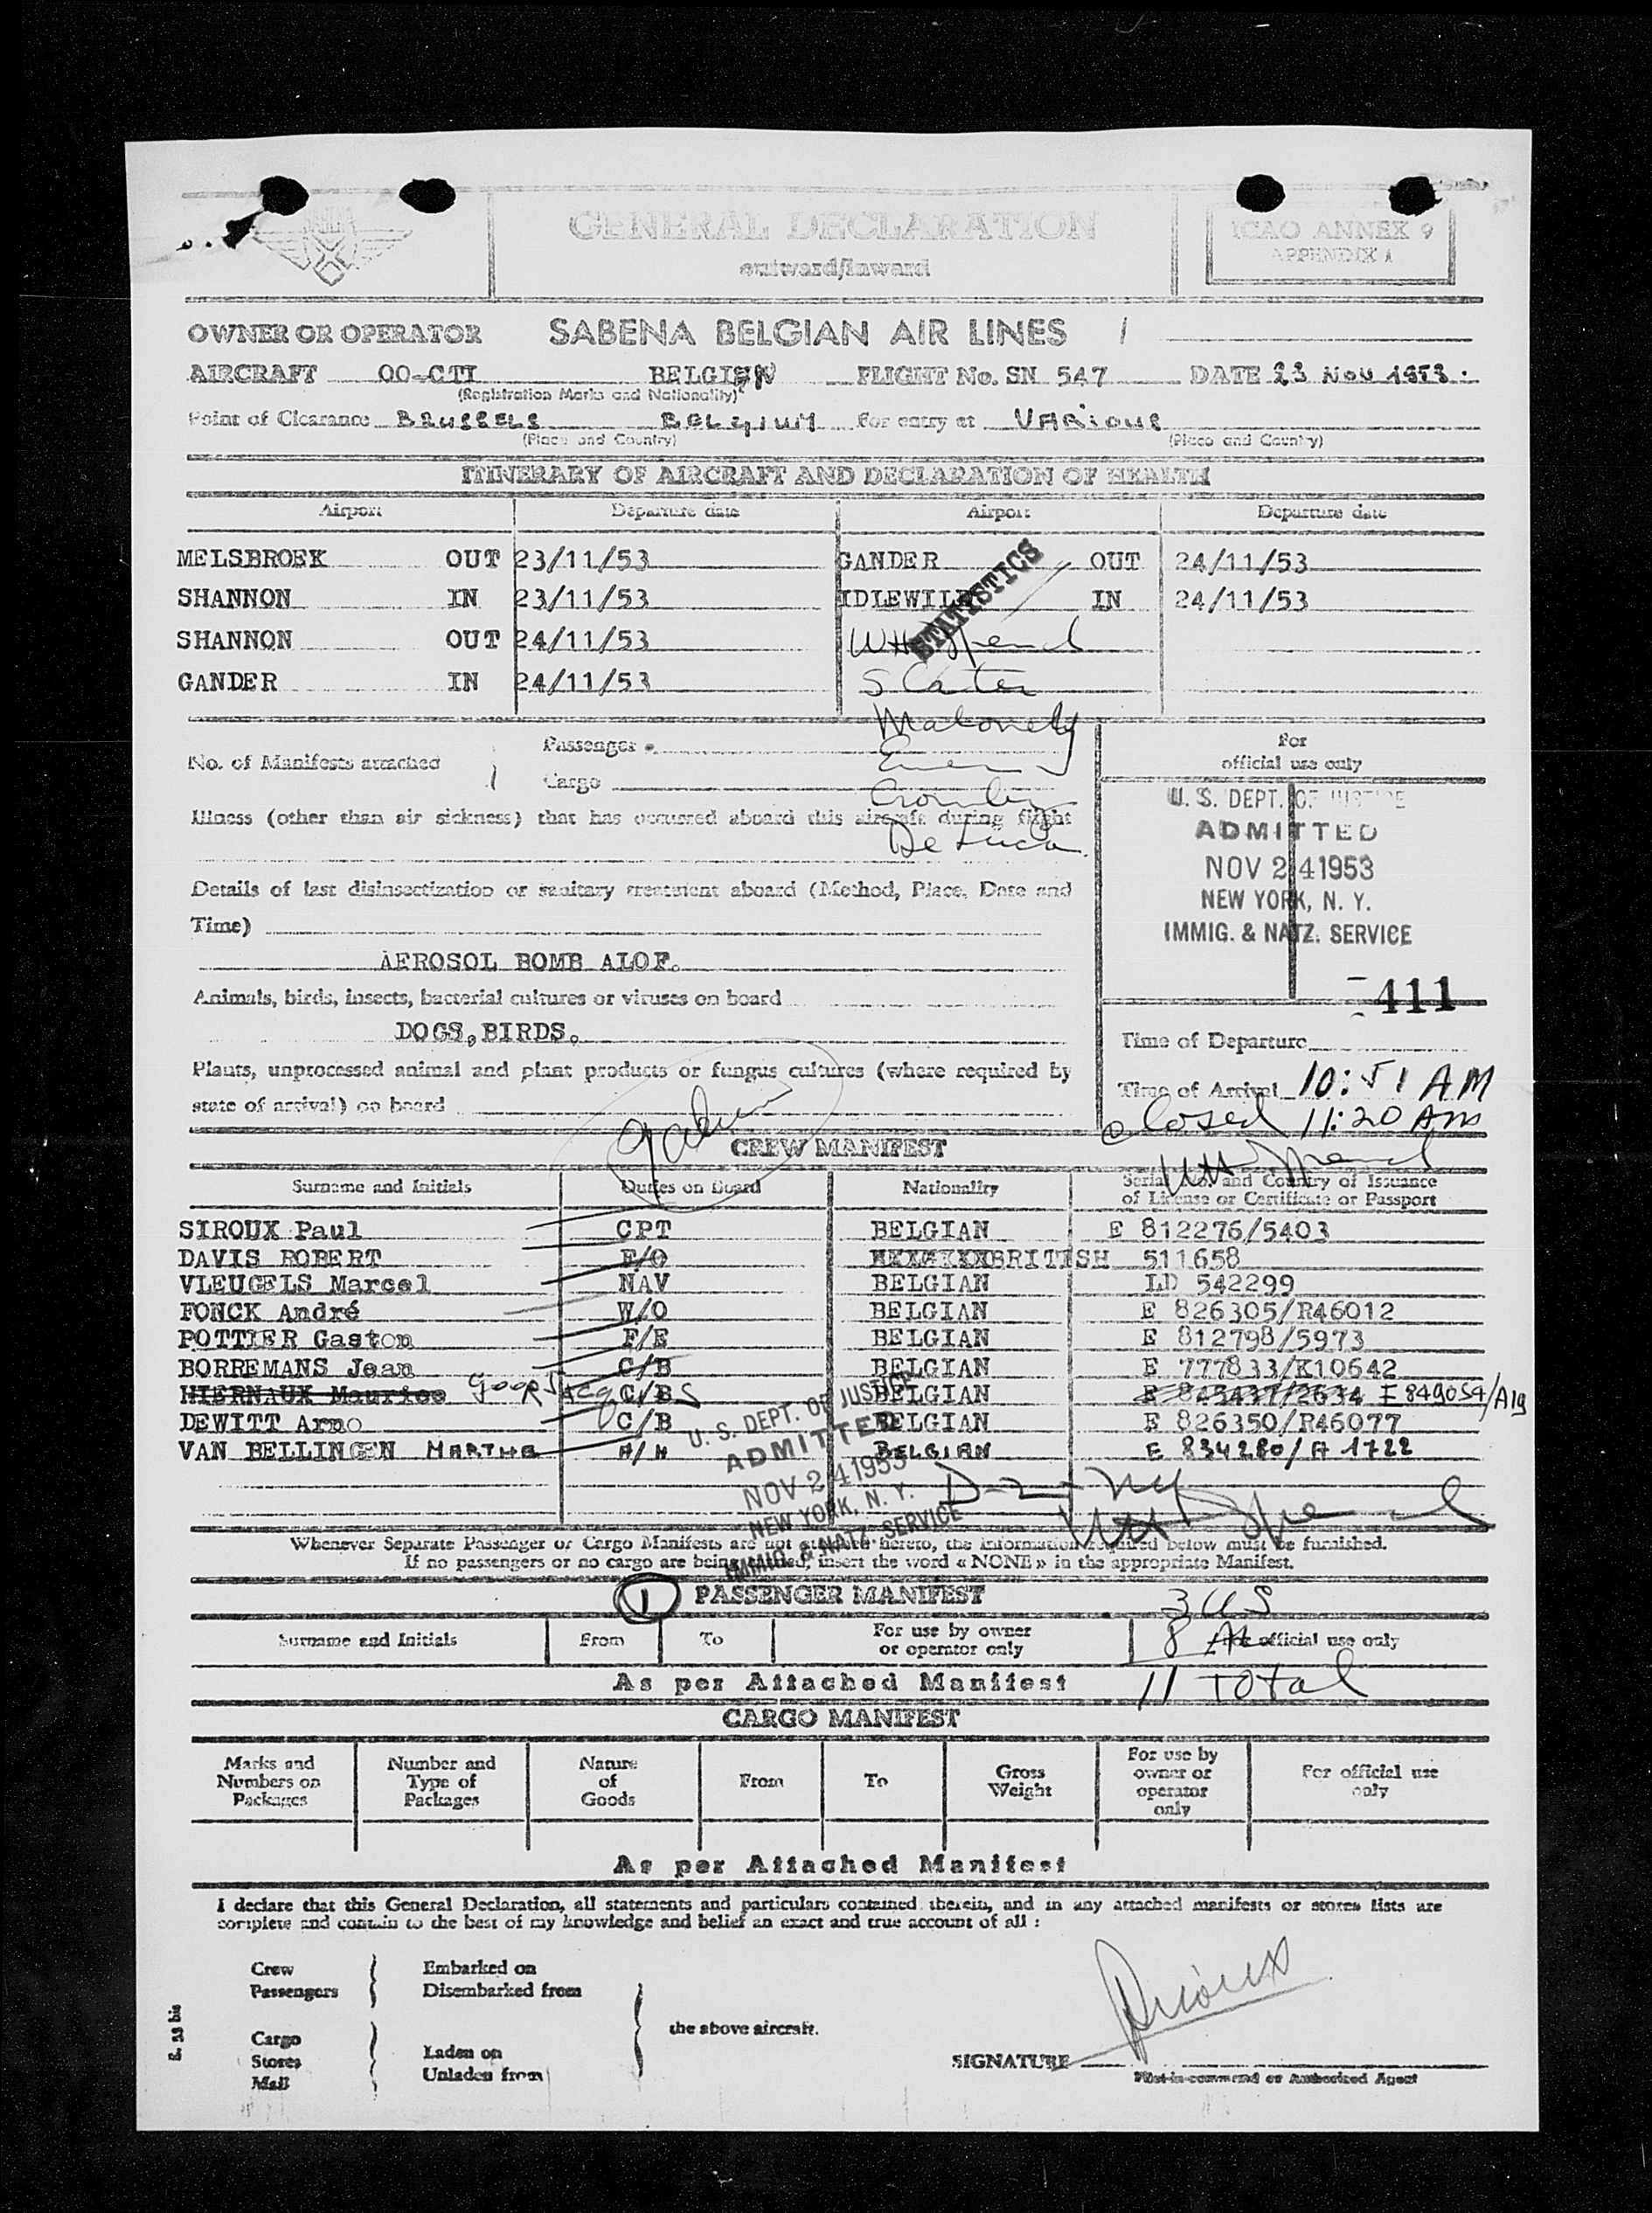 GENERAL DECLARATION
outward/inward
ICAO ANNEX 9
APPENDIX 1
OWNER OR OPERATOR SABENA BELGIAN AIR LINES
AIRCRAFT OO-CTI BELGIAN FLIGHT No. SN 547 DATE 23 Nov 1953.
(Registration Marks and Nationality)
Point of Clearance BRUSSELS BELGIUM For entry at VARIOUS
(Place and Country) (Place and Country)
ITINERARY OF AIRCRAFT AND DECLARATION OF HEALTH
Airport Departure date Airport Departure date
MELSBROEK OUT 23/11/53 GANDER OUT 24/11/53
SHANNON IN 23/11/53 IDLEWILD IN 24/11/53
STATISTICS
SHANNON OUT 24/11/53
GANDER IN 24/11/53 S Carter
No. of Manifests attached
Passenger
Cargo
For
official use only
U. S. DEPT. OF JUSTICE
ADMITTED
NOV 24 1953
NEW YORK, N. Y.
IMMIG. & NATZ. SERVICE
Illness (other than air sickness) that has occurred aboard this aircraft during flight
De Luca
Details of last disinsectization or sanitary treatment aboard (Method, Place, Date and
Time)
AEROSOL BOMB ALOF.
Animals, birds, insects, bacterial cultures or viruses on board
411
DOGS,BIRDS.
Time of Departure
Plants, unprocessed animal and plant products or fungus cultures (where required by
state of arrival) on board
Time of Arrival 10:51 AM
closed 11:20 Am
CREW MANIFEST
Surname and Initials Duties on Board Nationality Serial No. and Country of Issuance
of License or Certificate or Passport
SIROUX Paul CPT BELGIAN E 812276/5403
DAVIS ROBERT F/O BRITISH 511658
VLEUGELS Marcel NAV BELGIAN LD 542299
FONCK André W/O BELGIAN E 826305/R46012
POTTIER Gaston F/E BELGIAN E 812798/5973
BORREMANS Jean C/B BELGIAN E 777833/K10642
HIERNAUX Maurice C/B BELGIAN E 845437/2634 E 849054/A19
DEWITT Arno C/B BELGIAN E 826350/R46077
VAN BELLINGEN MARTHA A/H BELGIAN E 834280/A 1722
U. S. DEPT. OF JUSTICE
ADMITTED
NOV 24 1953
NEW YORK, N. Y.
IMMIG. & NATZ. SERVICE
Whenever Separate Passenger or Cargo Manifests are not attached hereto, the information required below must be furnished.
If no passengers or no cargo are being carried, insert the word « NONE » in the appropriate Manifest.
1 PASSENGER MANIFEST 3 US
Surname and Initials From To For use by owner
or operator only
8 For official use only
As per Attached Manifest 11 Total
CARGO MANIFEST
Marks and
Numbers on
Packages
Number and
Type of
Packages
Nature
of
Goods
From
To
Gross
Weight
For use by
owner or
operator
only
For official use
only
As per Attached Manifest
I declare that this General Declaration, all statements and particulars contained therein, and in any attached manifests or stores lists are
complete and contain to the best of my knowledge and belief an exact and true account of all :
Crew
Passengers
Embarked on
Disembarked from
Cargo
Stores
Mail
Laden on
Unladen from
the above aircraft.
E. 23 bis
SIGNATURE Siroux
Pilot-in-command or Authorized Agent